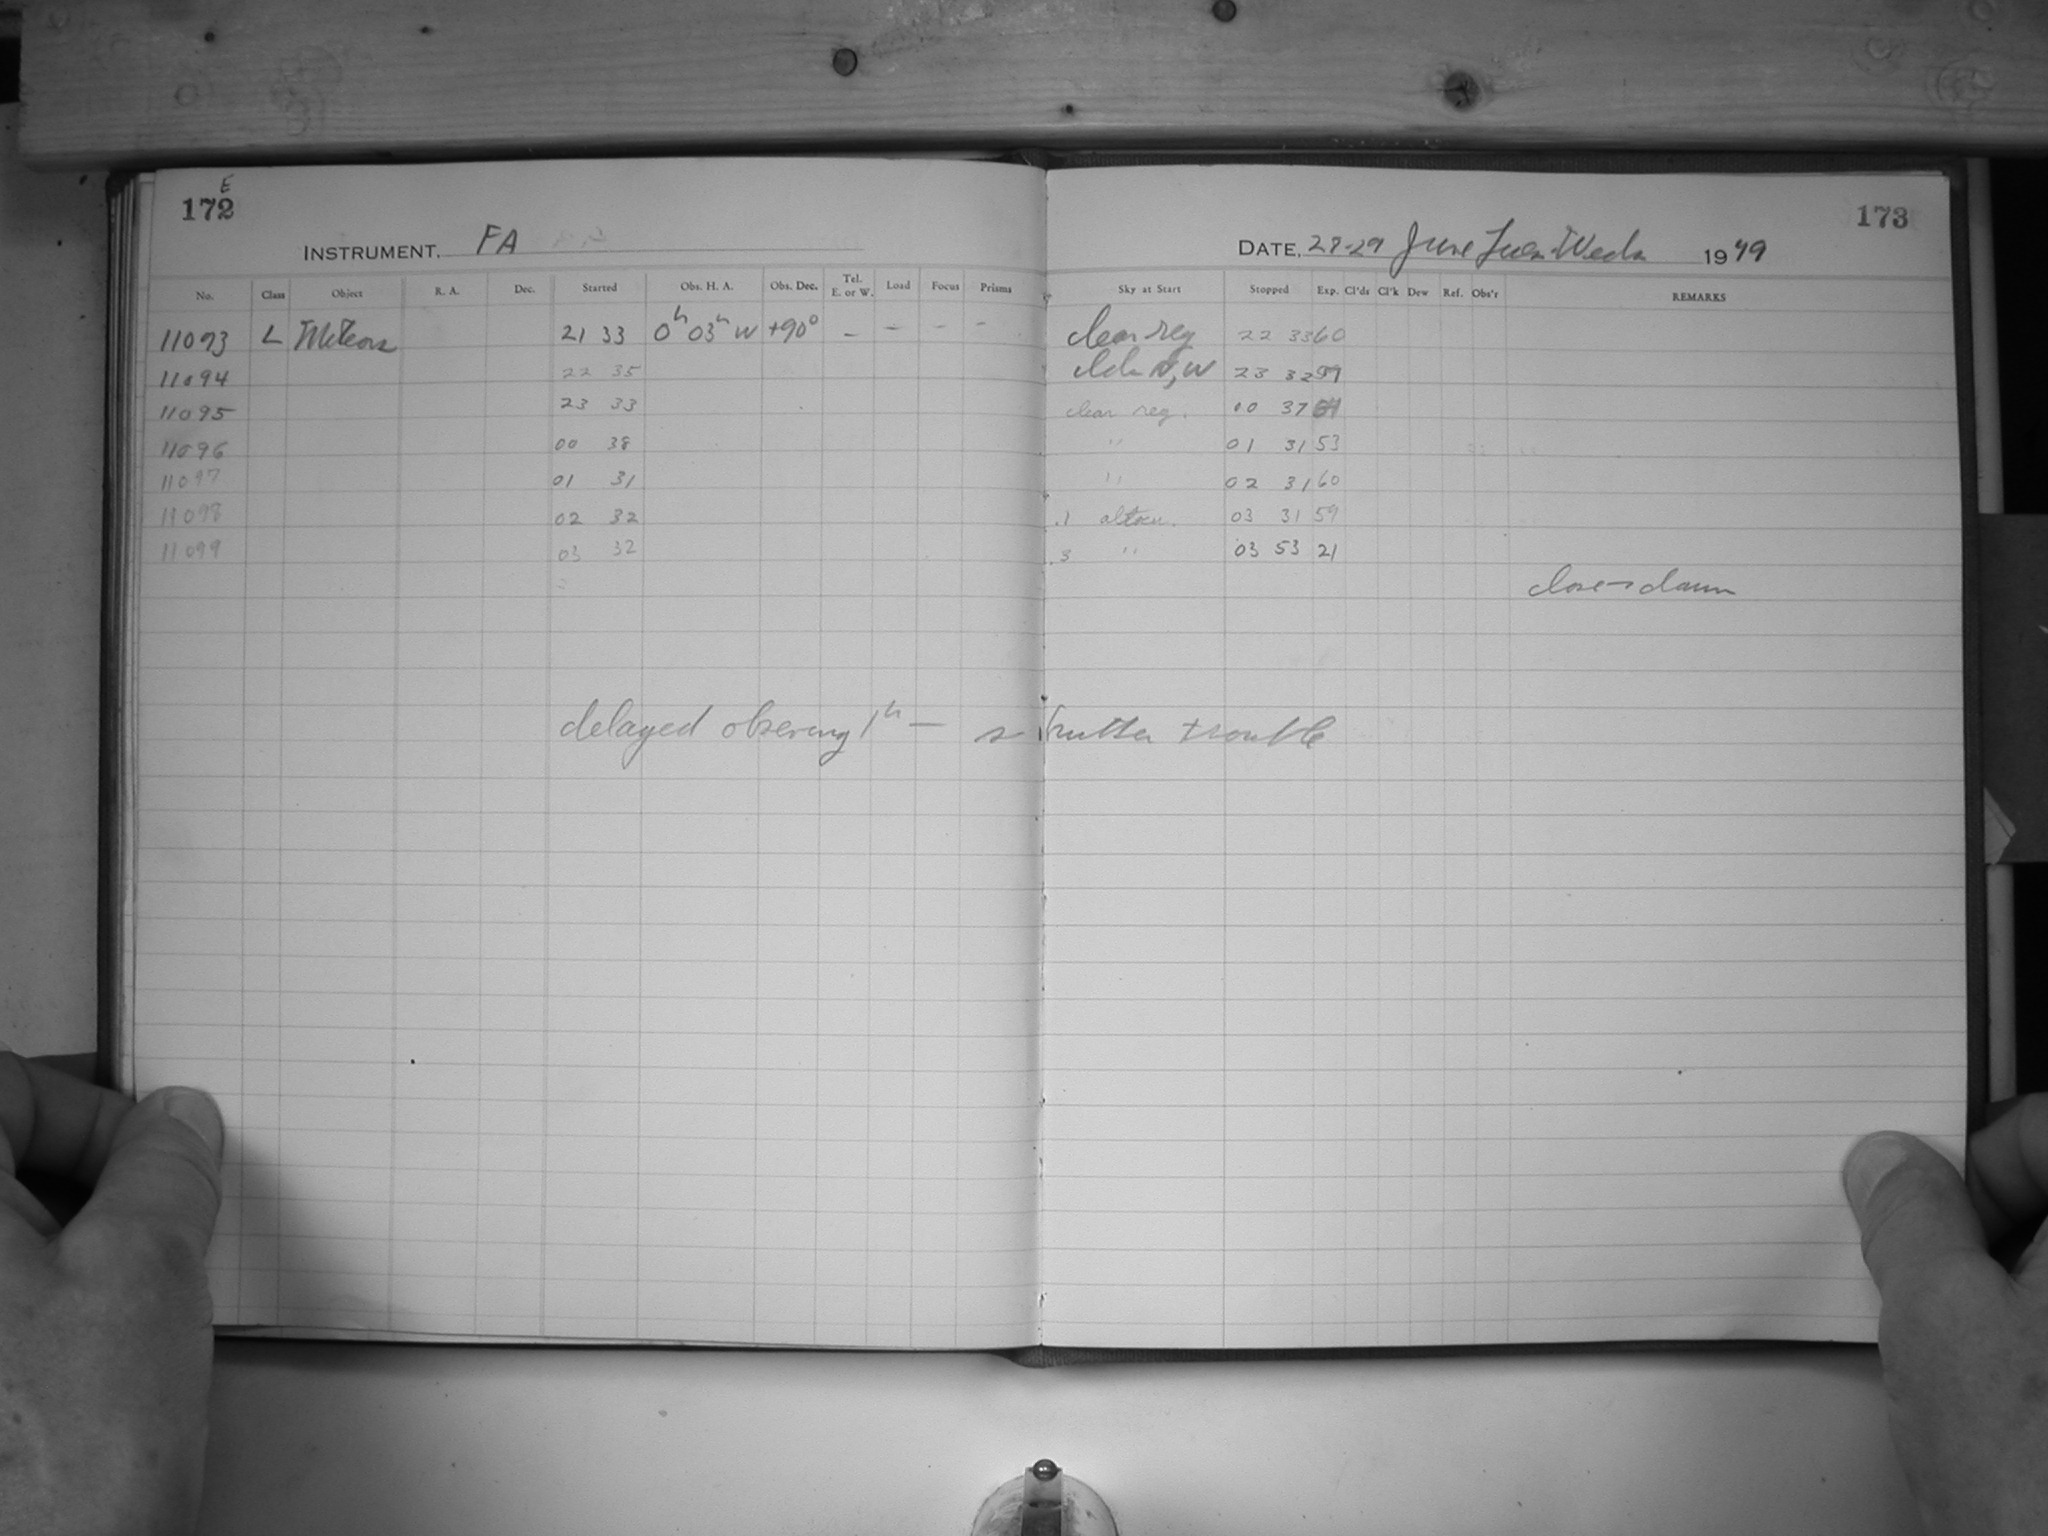 E
172 173
INSTRUMENT. FA DATE. 28-29 June Tues-Weds 1949
No. Class Object R. A. Dec. Started Obs. H. A. Obs. Dec. Tel. E. or W. Load Focus Prisms Sky at Start Stopped Exp. Cl'ds Cl'k Dew Ref. Obs'r REMARKS
11093 L Meteors 21 33 0h 03m W +90° - - - - clear reg 22 33 60
11094 22 35 clds N, W 23 32
11095 23 33 clear reg. 00 37
11096 00 38 " 01 31 53
11097 01 31 " 02 31 60
11098 02 32 .1 altocu. 03 31 59
11099 03 32 .3 " 03 53 21
close - dawn
delayed observing 1h — shutter trouble